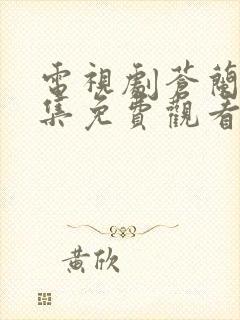 電視劇蒼蘭
集免費觀看
黃欣